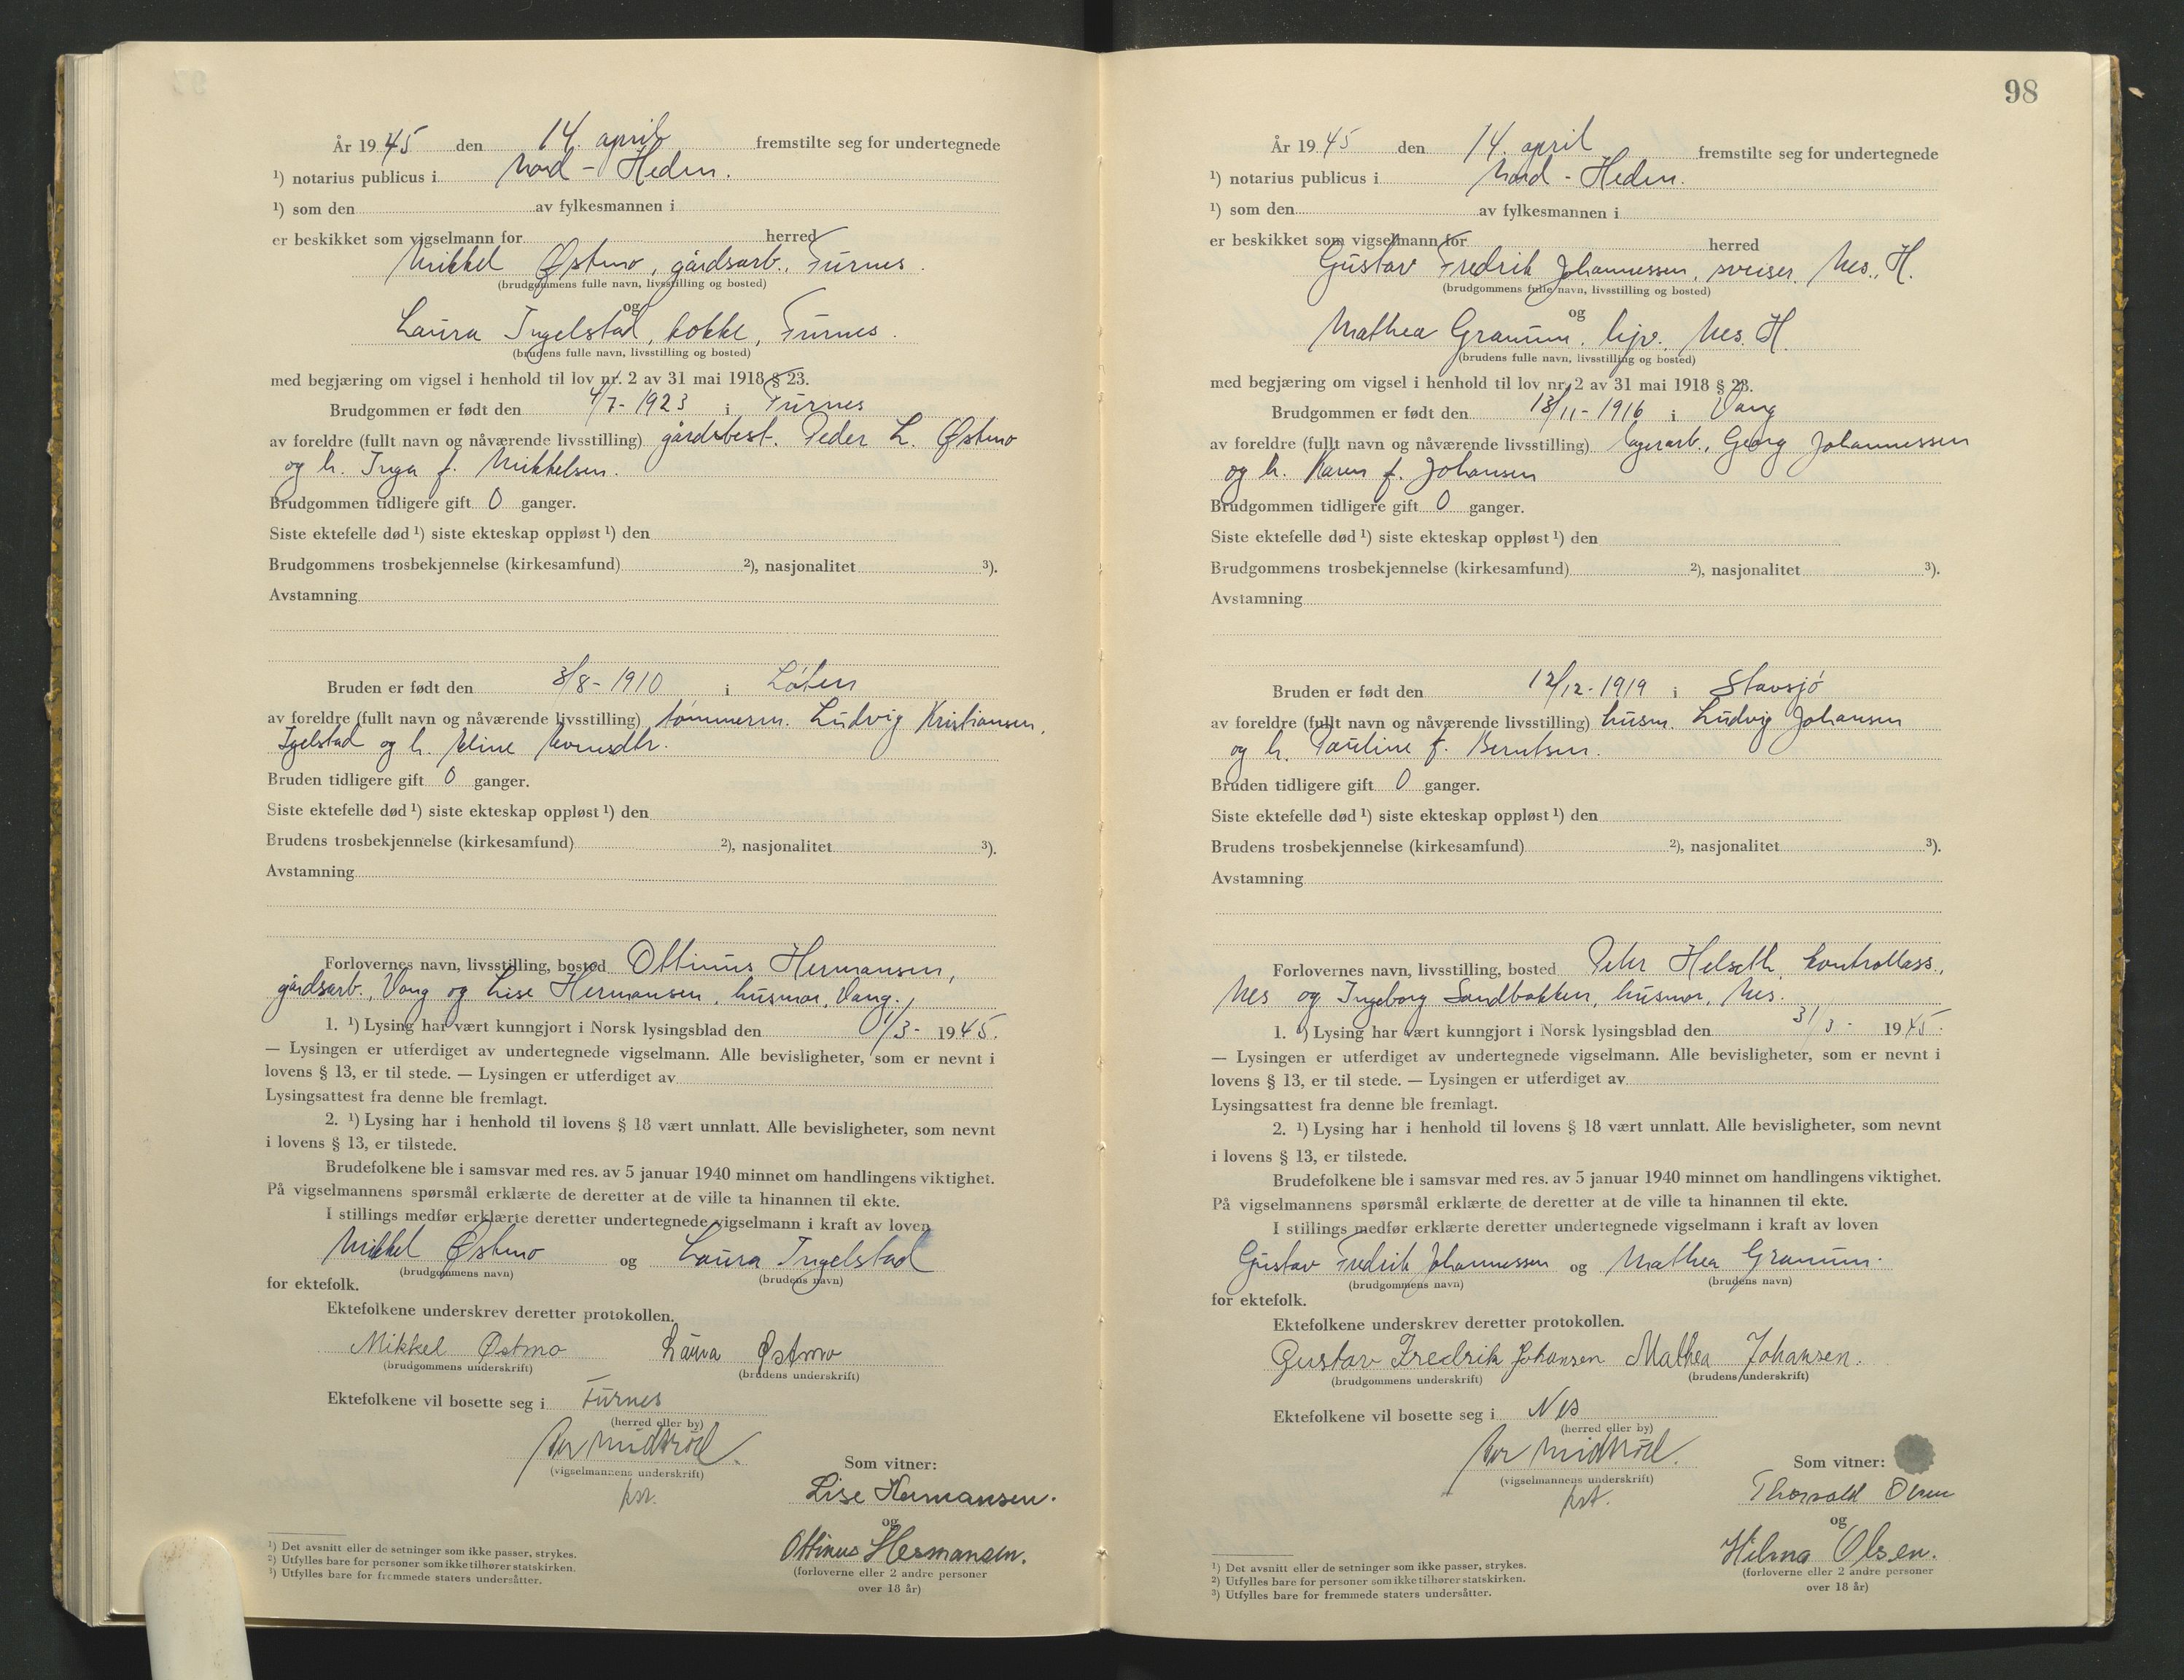 År 1945 den 14. april fremstilte seg for undertegnede
¹) notarius publicus i Nord - Hedm.
¹) som den av fylkesmannen i
er beskikket som vigselmann for herred
Mikkel Østmo, gårdsarb., Furnes.
(brudgommens fulle navn, livsstilling og bosted)
og
Laura Ingelstad, kokke, Furnes.
(brudens fulle navn, livsstilling og bosted)
med begjæring om vigsel i henhold til lov nr. 2 av 31 mai 1918 § 23.
Brudgommen er født den 4/7 - 1923 i Furnes
av foreldre (fullt navn og nåværende livsstilling) gårdbest. Peder L. Østmo
og h. Inga f. Mikkelsen.
Brudgommen tidligere gift 0 ganger.
Siste ektefelle død ¹) siste ekteskap oppløst ¹) den
Brudgommens trosbekjennelse (kirkesamfund) ²), nasjonalitet ³).
Avstamning
Bruden er født den 3/8 - 1910 i Løten
av foreldre (fullt navn og nåværende livsstilling) tømmerm. Ludvig Kristiansen,
Igelstad og h. Eline
Bruden tidligere gift 0 ganger.
Siste ektefelle død ¹) siste ekteskap oppløst ¹) den
Brudens trosbekjennelse (kirkesamfund) ²), nasjonalitet ³).
Avstamning
Forlovernes navn, livsstilling, bosted Ottinus Hermansen,
gårdsarb., Vang og Lise Hermansen, husmor, Vang.
1. ¹) Lysing har vært kunngjort i Norsk lysingsblad den /3 - 1945.
— Lysingen er utferdiget av undertegnede vigselmann. Alle bevisligheter, som er nevnt i
lovens § 13, er til stede. — Lysingen er utferdiget av
Lysingsattest fra denne ble fremlagt.
2. ¹) Lysing har i henhold til lovens § 18 vært unnlatt. Alle bevisligheter, som nevnt
i lovens § 13, er tilstede.
Brudefolkene ble i samsvar med res. av 5 januar 1940 minnet om handlingens viktighet.
På vigselmannens spørsmål erklærte de deretter at de ville ta hinannen til ekte.
I stillings medfør erklærte deretter undertegnede vigselmann i kraft av loven
Mikkel Østmo og Laura Ingelstad
(brudgommens navn) (brudens navn)
for ektefolk.
Ektefolkene underskrev deretter protokollen.
Mikkel Østmo Laura Østmo
(brudgommens underskrift) (brudens underskrift)
Ektefolkene vil bosette seg i Furnes
(herred eller by)
Per Midtrød.
(vigselmannens underskrift)
kst.
Som vitner:
Lise Hermansen.
og
Ottinus Hermansen.
(forloverne eller 2 andre personer
over 18 år)
¹) Det avsnitt eller de setninger som ikke passer, strykes.
²) Utfylles bare for personer som ikke tilhører statskirken.
³) Utfylles bare for fremmede staters undersåtter.
98
År 1945 den 14. april fremstilte seg for undertegnede
¹) notarius publicus i Nord - Hedm.
¹) som den av fylkesmannen i
er beskikket som vigselmann for herred
Gustav Fredrik Johannessen, sveiser, Nes, H.
(brudgommens fulle navn, livsstilling og bosted)
og
Mathea Granum, hjv. Nes. H.
(brudens fulle navn, livsstilling og bosted)
med begjæring om vigsel i henhold til lov nr. 2 av 31 mai 1918 § 23.
Brudgommen er født den 13/11 - 1916 i Vang
av foreldre (fullt navn og nåværende livsstilling) lagerarb., Georg Johannessen
og h. Karen f. Johansen
Brudgommen tidligere gift 0 ganger.
Siste ektefelle død ¹) siste ekteskap oppløst ¹) den
Brudgommens trosbekjennelse (kirkesamfund) ²), nasjonalitet ³).
Avstamning
Bruden er født den 12/12 - 1919 i Stavsjø
av foreldre (fullt navn og nåværende livsstilling) husm. Ludvig Johansen
og h. Pauline f. Berntsen.
Bruden tidligere gift 0 ganger.
Siste ektefelle død ¹) siste ekteskap oppløst ¹) den
Brudens trosbekjennelse (kirkesamfund) ²), nasjonalitet ³).
Avstamning
Forlovernes navn, livsstilling, bosted Peter Helseth, kontrollass.,
Nes og Ingeborg Sandbakken, husmor, Nes.
1. ¹) Lysing har vært kunngjort i Norsk lysingsblad den 3/3 - 1945.
— Lysingen er utferdiget av undertegnede vigselmann. Alle bevisligheter, som er nevnt i
lovens § 13, er til stede. — Lysingen er utferdiget av
Lysingsattest fra denne ble fremlagt.
2. ¹) Lysing har i henhold til lovens § 18 vært unnlatt. Alle bevisligheter, som nevnt
i lovens § 13, er tilstede.
Brudefolkene ble i samsvar med res. av 5 januar 1940 minnet om handlingens viktighet.
På vigselmannens spørsmål erklærte de deretter at de ville ta hinannen til ekte.
I stillings medfør erklærte deretter undertegnede vigselmann i kraft av loven
Gustav Fredrik Johannessen og Mathea Granum.
(brudgommens navn) (brudens navn)
for ektefolk.
Ektefolkene underskrev deretter protokollen.
Gustav Fredrik Johansen Mathea Johansen.
(brudgommens underskrift) (brudens underskrift)
Ektefolkene vil bosette seg i Nes
(herred eller by)
Per Midtrød.
(vigselmannens underskrift)
kst.
Som vitner:
Thorvald Olsen
og
Hilma Olsen.
(forloverne eller 2 andre personer
over 18 år)
¹) Det avsnitt eller de setninger som ikke passer, strykes.
²) Utfylles bare for personer som ikke tilhører statskirken.
³) Utfylles bare for fremmede staters undersåtter.